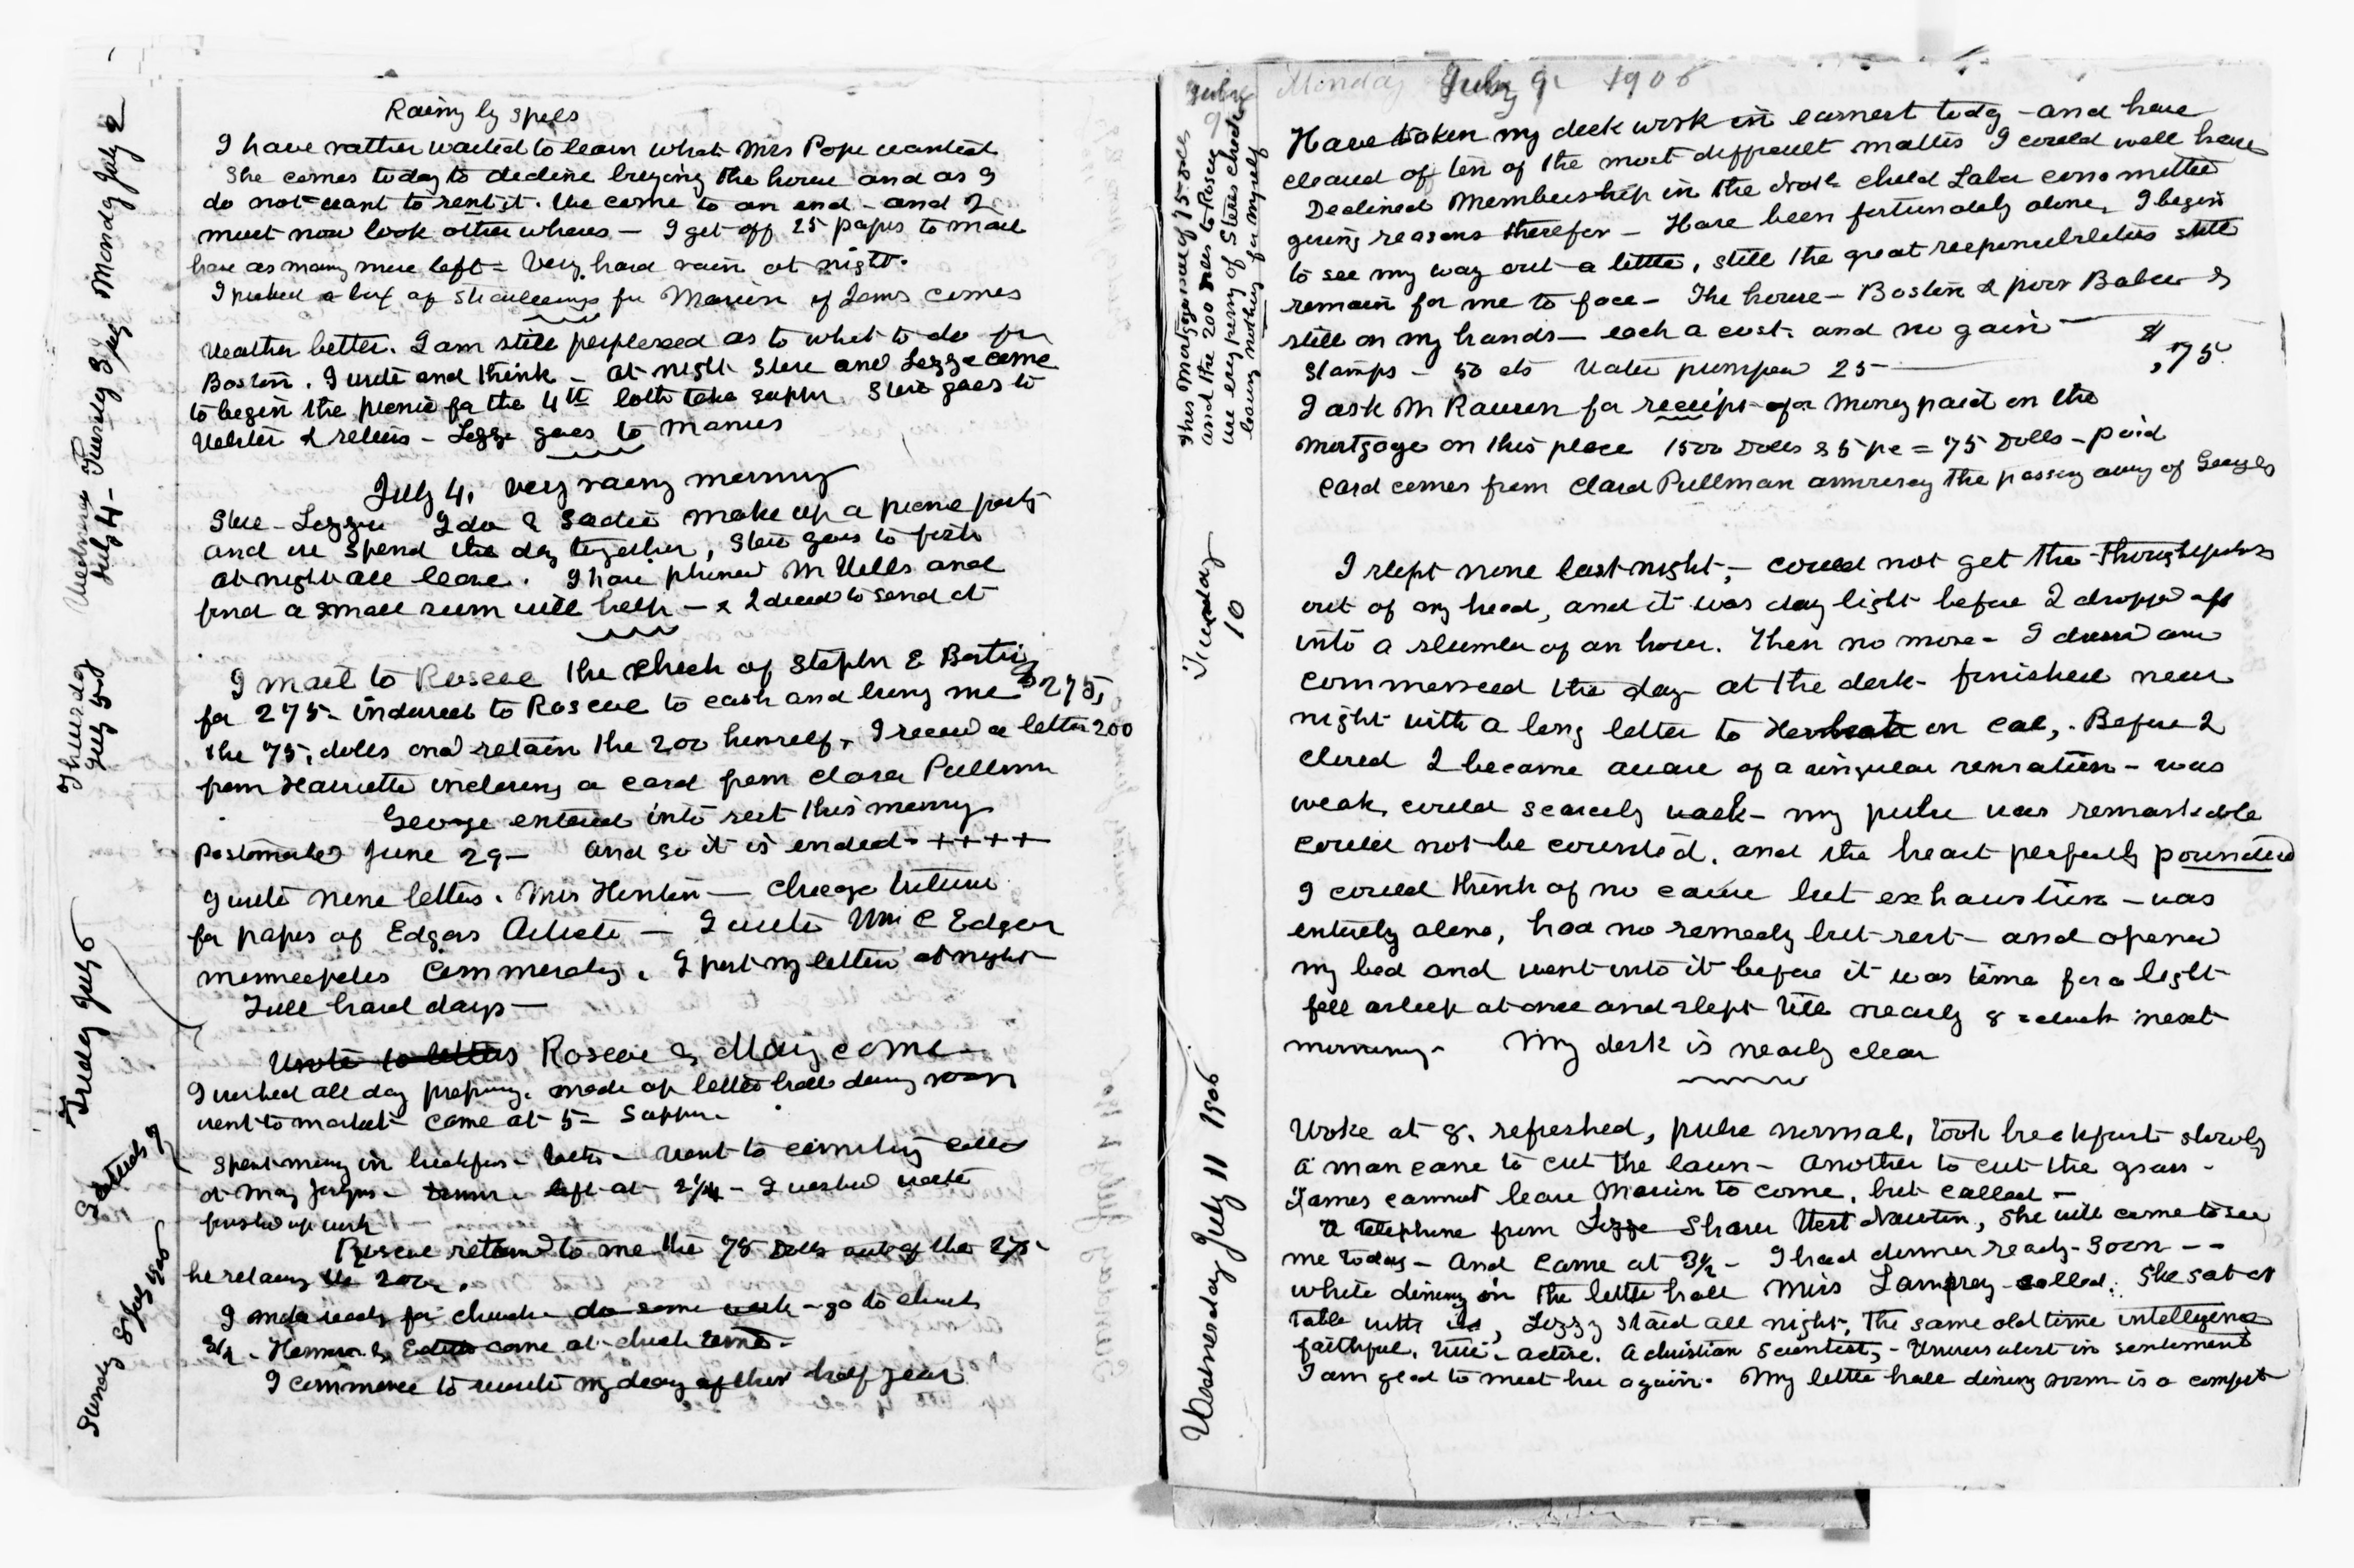 Monday July 2
Rainy by spells
I have rather waited to learn what Mrs Pope wanted
She comes today to decline buying the house and as I
do not want to rent it. We come to an end - and I
must now look other wheres - I get off 25 papers to mail
have as many more left = Very hard rain at night.
I packed a box of for Marion if James comes
Tuesday 3d July
Weather better. I am still perplexed as to what to do for
Boston. I write and think - at night Steve and Lizzie come
to begin the picnic for the 4th both take supper. Steve goes to
Webster & returns - Lizzie goes to Manns
Wednesday July 4 -
July 4. Very rainy morning
Steve - Lizzie Ida & Sadie make up a picnic party
and we spend the day together, Steve goes to fish
at night all leave. I have phoned Mr Wells and
find a small sum will help - & I decide to send it
Thursday July 5th
I mail to Roscoe the check of Stephen E Barton
for 275 - indorsed to Roscoe to cash and bring me $275,
the 75, dolls and retain the 200 himself. I receive a letter 200
from Harriette inclosing a card from Clara Pullman
George entered into rest this morning
Postmarked June 29 - and so it is ended - ++++
I write nine letters. Mrs Hinton - Chicago Tribune
for papers of Edgars Article - I write Wm C Edgar
Minneapolis Commercial, I post my letters at night
Full hard days -
Friday July 6
Wrote to letters Roscoe & May come -
I worked all day preparing. made up little hall dining room
went to market - came at 5 - Supper -
Saturday 7
Spent morning in breakfast - talk - went to cemetery called
at May - dinner - left at 2 1/4 - I worked
finished up work
Roscoe returned to me the 75 Dolls out of the 275 -
he retains the 200.
Sunday 8 July
I made ready for church - do some work - go to church
3 1/2 - Herman & Edith come at church time -
I commence to rewrite my diary of this half year
Monday July 9, 1906
July 9
This Mortgage was of 75 dolls
and the 200 Dolls to Roscoe
use every penny of Steves check
leaving nothing for myself
Have taken my desk work in earnest today - and have
cleared off ten of the most difficult matters I could well have
Declined Membership in the Natl Child Labor committee
giving reasons therefor - Have been fortunately alone, I begin
to see my way out a little, still the great responsibilities still
remain for me to face - The house - Boston & poor Baba is
still on my hands - each a cost. and no gain -
Stamps - 50 cts Water pumped 25 - $ ,75
I ask Mr Rausen for receipt for Money paid on the
Mortgage on this place 1500 Dolls & 5 pc = 75 Dolls - paid
Card comes from Clara Pullman announcing the passing away of George
Tuesday 10
I slept none last night, - could not get the thoughts
out of my head, and it was day light before I dropped off
into a slumber of an hour. Then no more - I dressed and
commenced the day at the desk - finished near
night with a long letter to in Cal,. Before I
closed I became aware of a singular sensation - was
weak, could scarcely walk - my pulse was remarkable
could not be counted, and the heart perfectly pounded
I could think of no cause but exhaustion - was
entirely alone, had no remedy but rest - and opened
my bed and went into it before it was time for a light
fell asleep at once and slept till nearly 8 oclock next
morning - My desk is nearly clear
Wednesday July 11 1906
Woke at 8. refreshed, pulse normal, took breakfast slowly
A man came to cut the lawn - Another to cut the grass -
James cannot leave Marion to come, but called -
A telephone from Lizzie Sharer West Newton, She will come to see
me today - And came at 3 1/2 - I had dinner ready soon - -
while dining in the little hall Miss Lamprey called. She sat at
table with us, Lizzy staid all night, The same old time intelligence
faithful, true - active. A christian Scientist, - Universalist in sentiment
I am glad to meet her again. My little hall dining room is a comfort